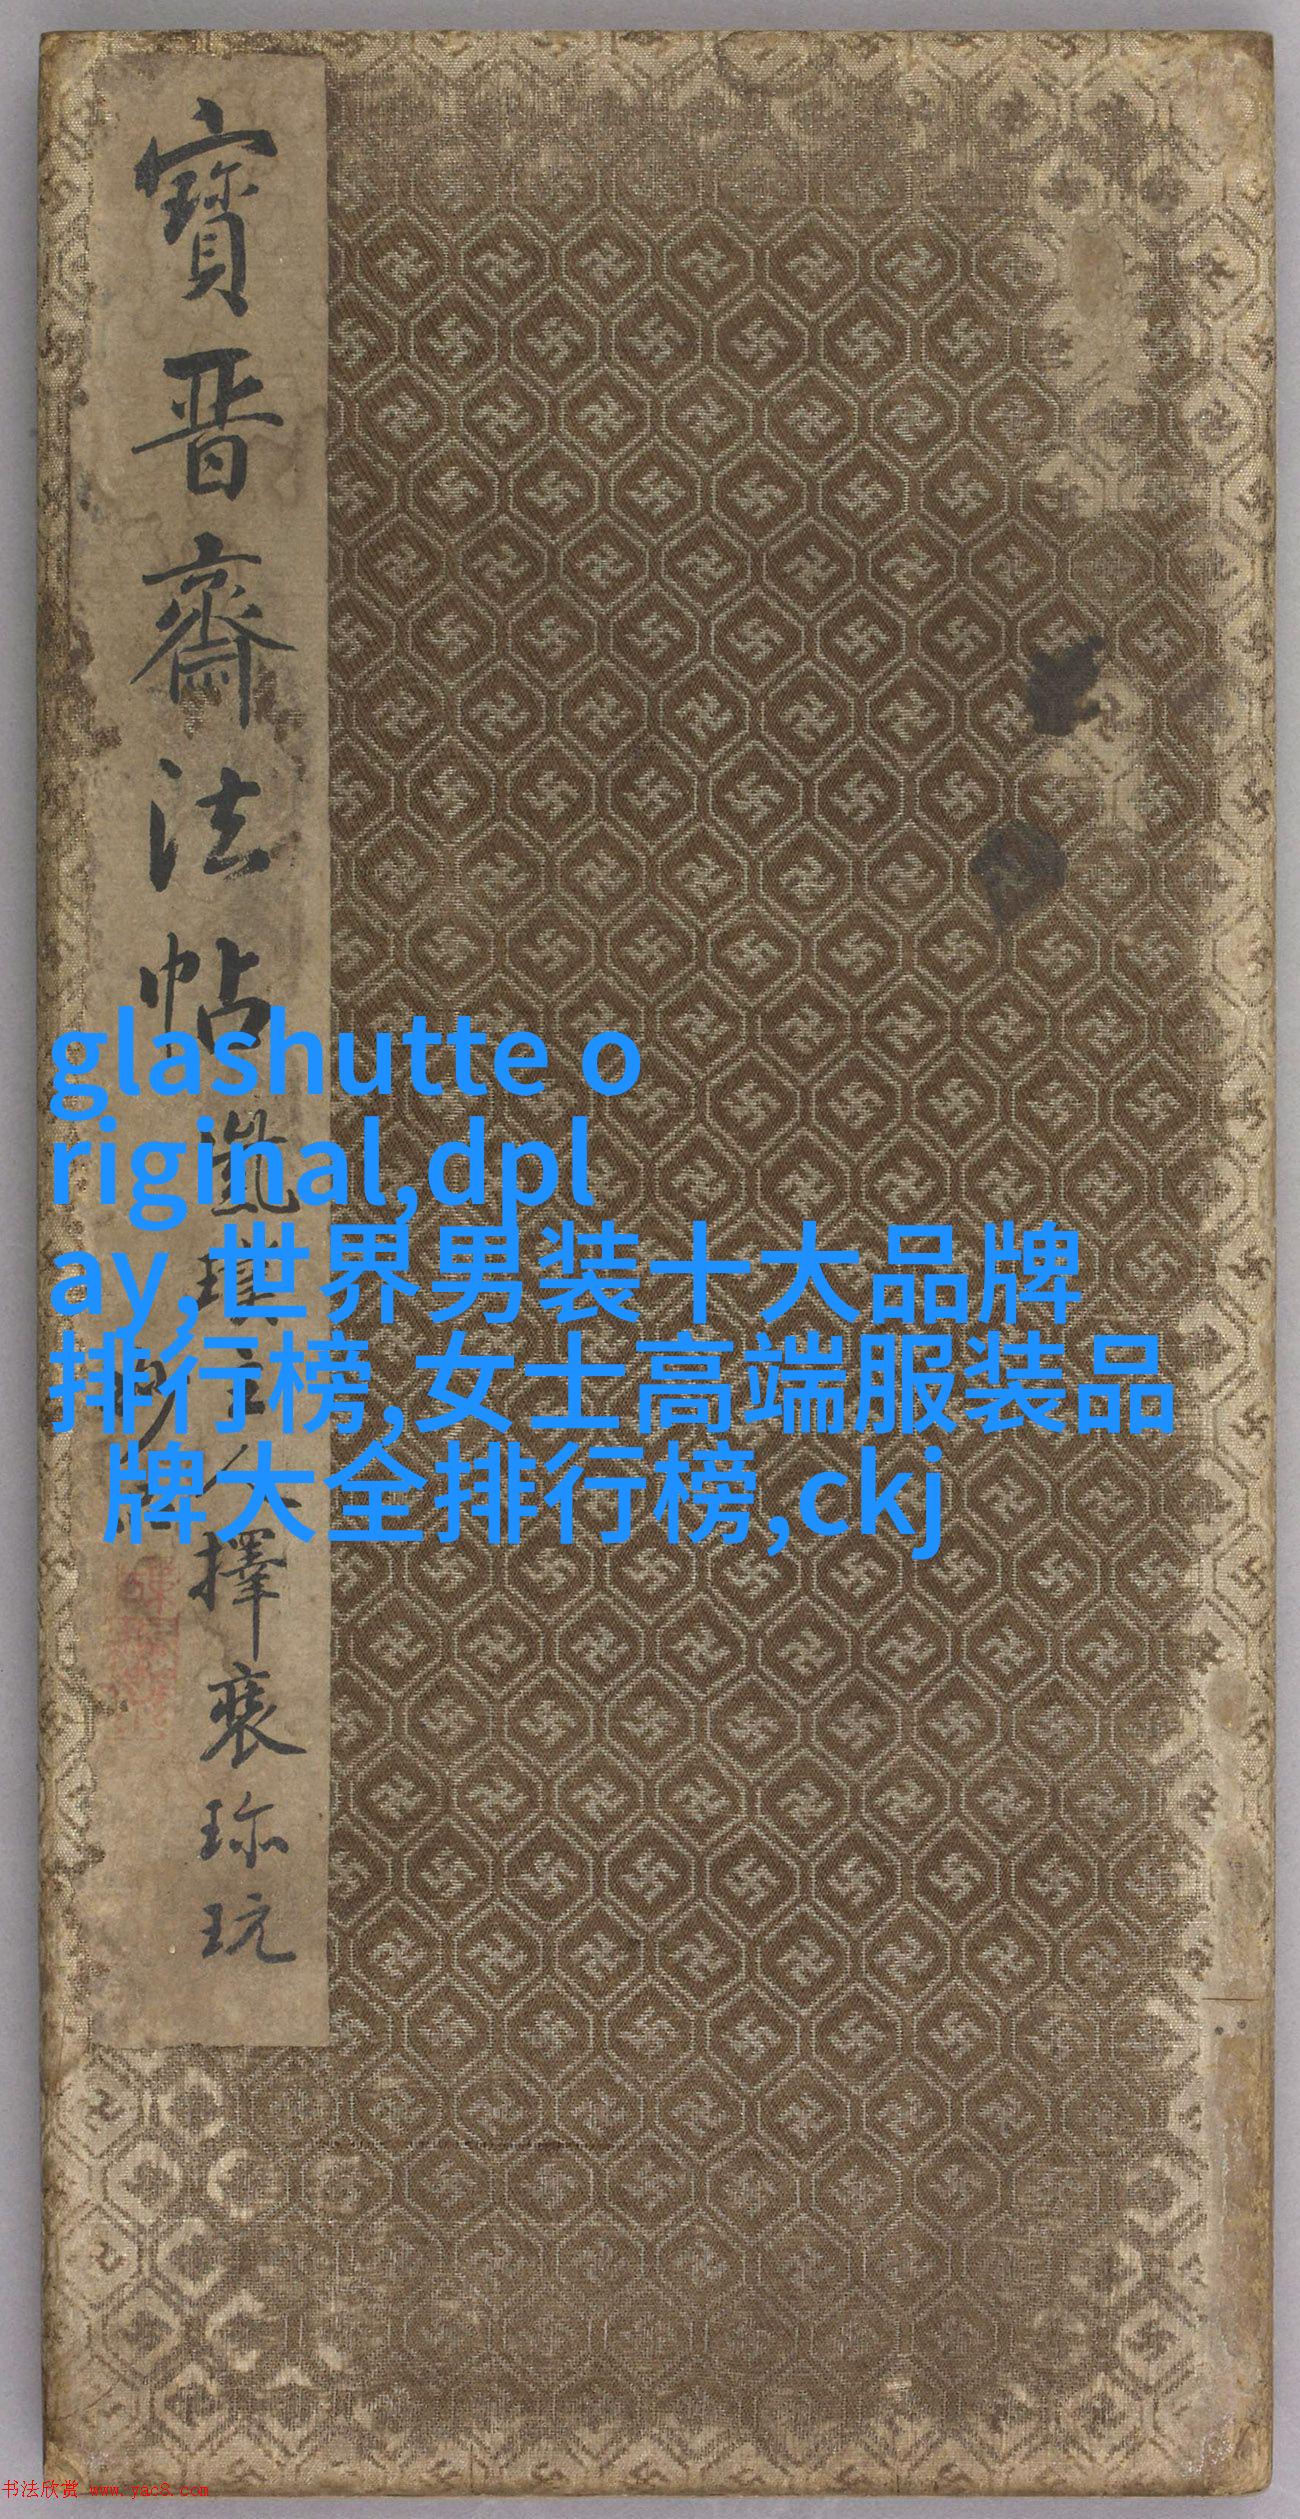 寶晉齋法帖
擇裘珎玩
glashutte o
riginal,dpl
ay,世界男装十大品牌
排行榜,女士高端服装品
牌大全排行榜,ckj
书法欣赏 www.yac8.com